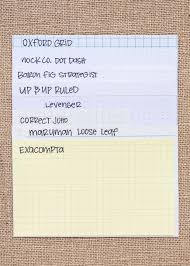 OXFORD GRID
NOCK CO. DOT DASH
BARON FIG STRATEGIST
UP & UP RULED
LEVENGER
CORRECT JOTO
MARUMAN LOOSE LEAF
EXACOMPTA